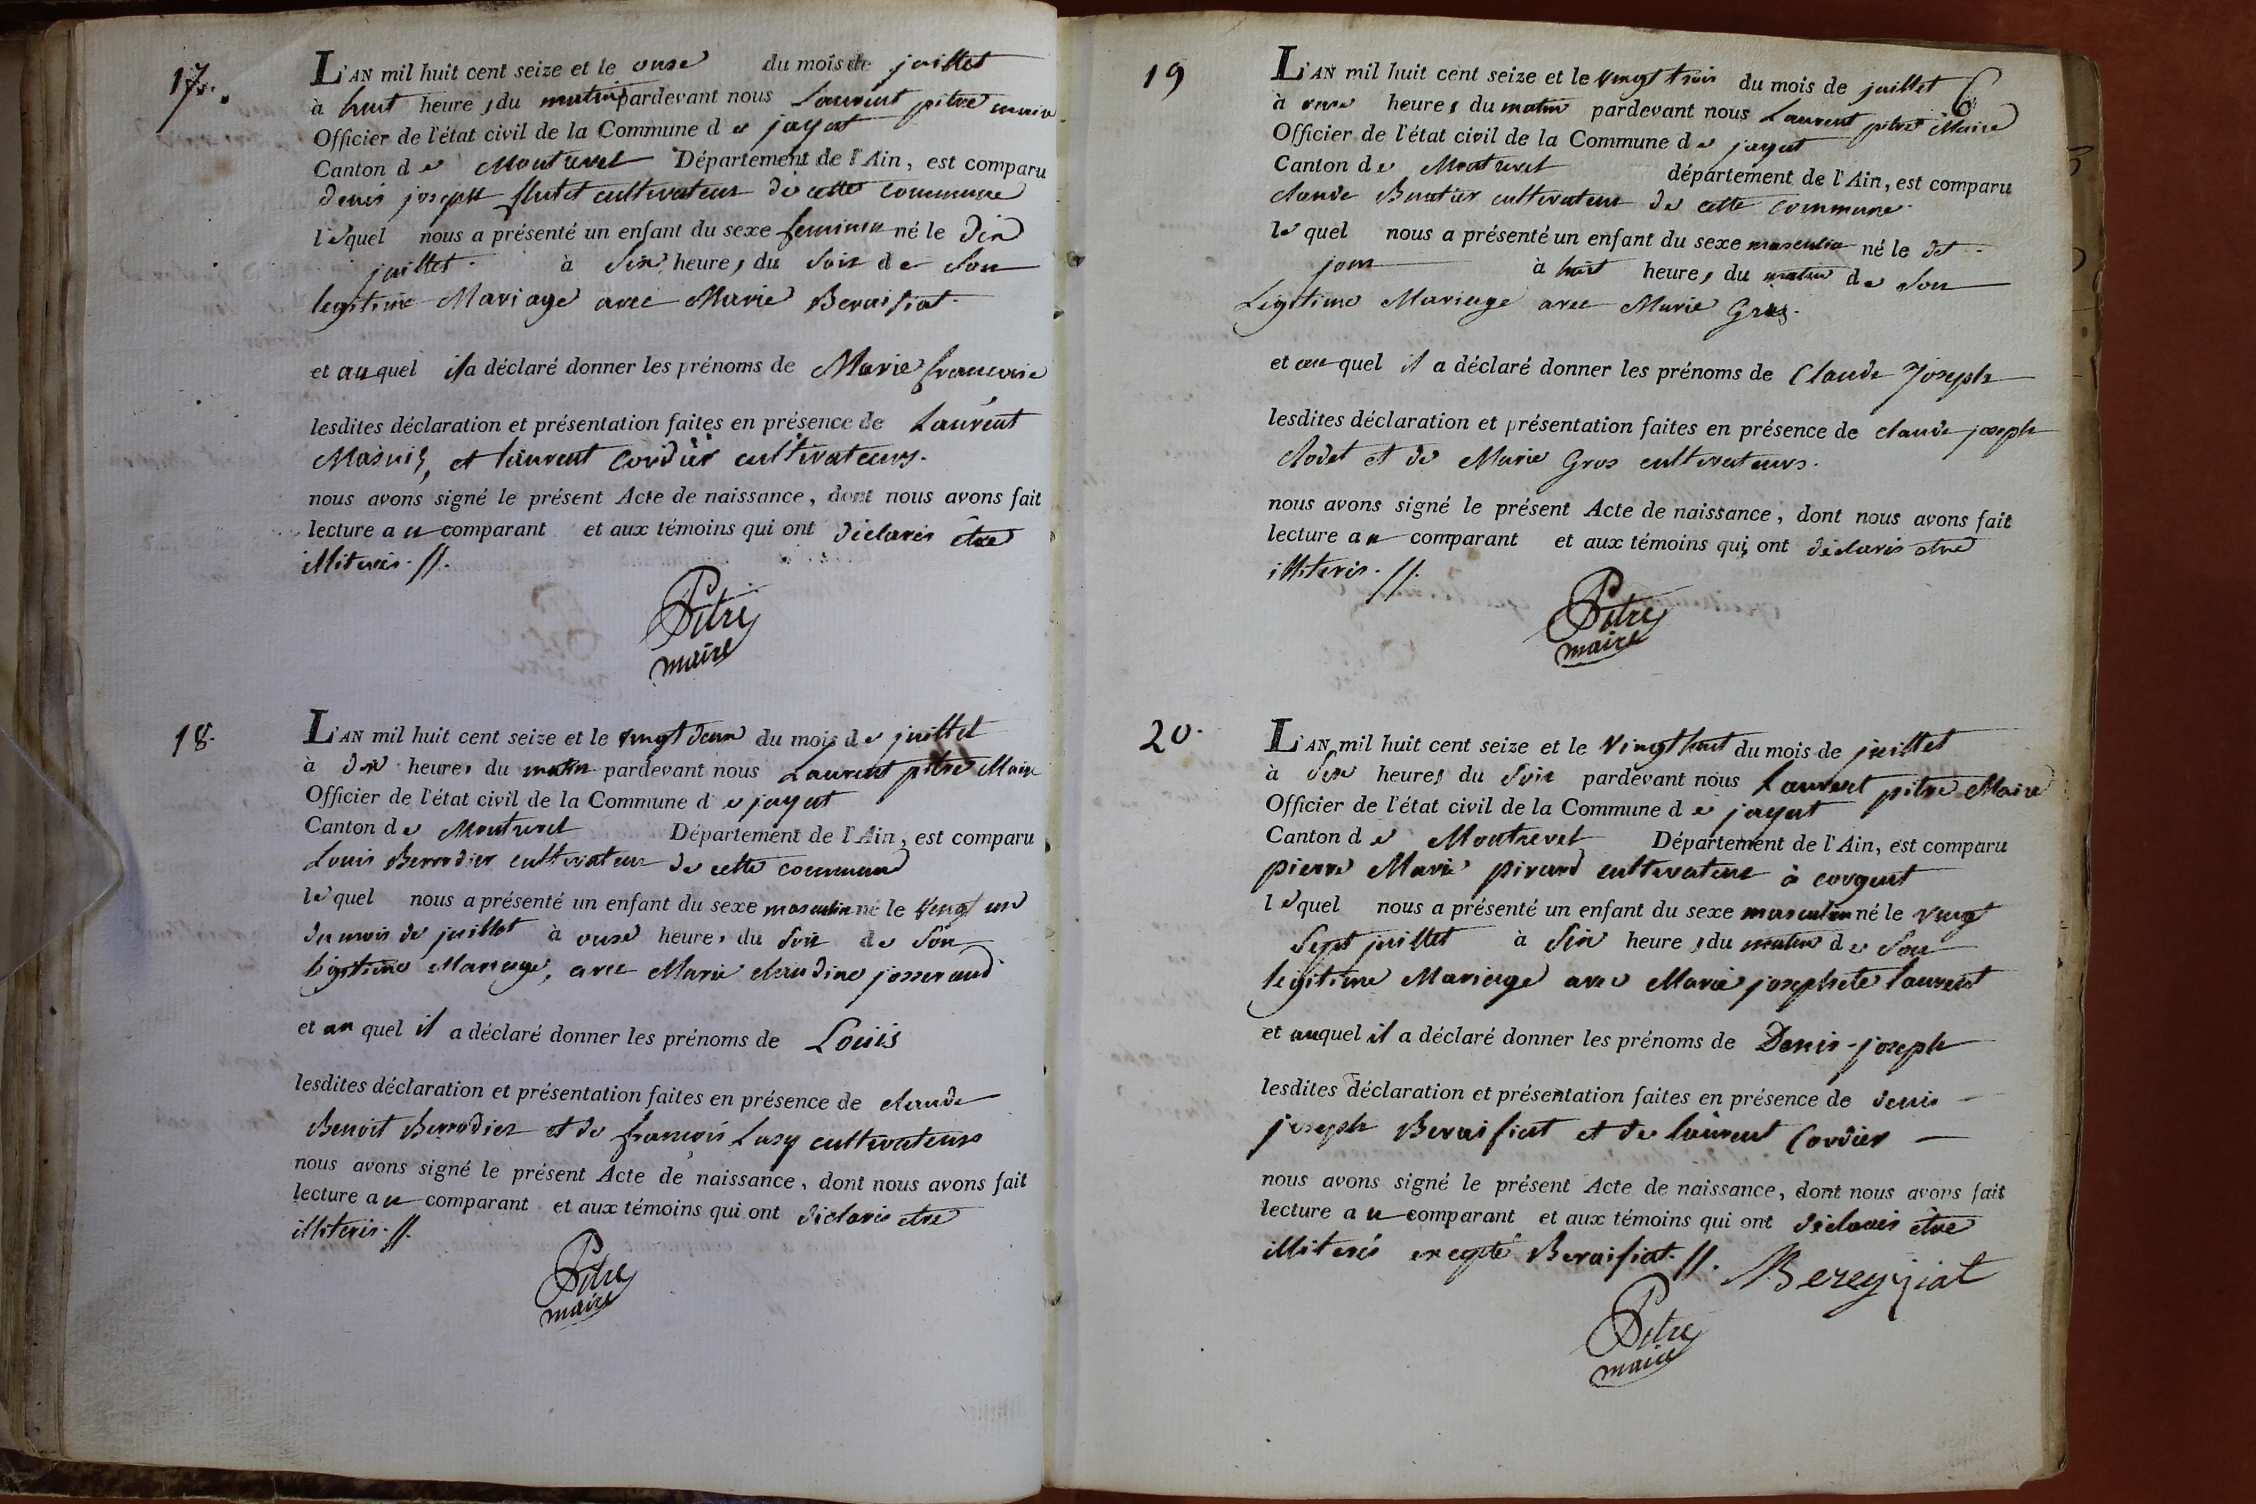 17.
L'AN mil huit cent seize et le onze du mois de juillet
à huit heures du matin pardevant nous Laurent pitre maire
Officier de l'état civil de la Commune de jayat
Canton de Montrevel Département de l'Ain, est comparu
denis joseph flutet cultivateur de cette commune
lequel nous a présenté un enfant du sexe feminin né le dix
juillet à six heures du soir de son
legitime Mariage avec Marie Beraisiat
et auquel il a déclaré donner les prénoms de Marie francoise
lesdites déclaration et présentation faites en présence de Laurent
Masuis, et laurent Cordier cultivateurs.
nous avons signé le présent Acte de naissance, dont nous avons fait
lecture au comparant et aux témoins qui ont déclarés être
illiterés. //.
Pitre
maire
18.
L'AN mil huit cent seize et le vingt deux du mois de juillet
à dix heures du matin pardevant nous Laurent pitre Maire
Officier de l'état civil de la Commune de jayat
Canton de Montrevel Département de l'Ain, est comparu
Louis Berrodier cultivateur de cette commune
lequel nous a présenté un enfant du sexe masculin né le vingt un
du mois de juillet à onze heures du soir de son
legitime Mariage, avec Marie claudine josserand
et auquel il a déclaré donner les prénoms de Louis
lesdites déclaration et présentation faites en présence de claude
Benoit Berrodier et de francois Lasy cultivateurs
nous avons signé le présent Acte de naissance, dont nous avons fait
lecture au comparant et aux témoins qui ont déclarés etre
illiterés. //.
Pitre
maire
6
19
L'AN mil huit cent seize et le vingt trois du mois de juillet
à onze heures du matin pardevant nous Laurent pitre Maire
Officier de l'état civil de la Commune de jayat
Canton de Montrevel département de l'Ain, est comparu
claude Buatier cultivateur de cette commune
lequel nous a présenté un enfant du sexe masculin né le dit
jour à huit heures du matin de son
Legitime Mariage avec Marie Gros.
et auquel il a déclaré donner les prénoms de Claude Joseph
lesdites déclaration et présentation faites en présence de claude joseph
clodet et de Marie Gros cultivateurs.
nous avons signé le présent Acte de naissance, dont nous avons fait
lecture au comparant et aux témoins qui ont déclarés etre
illiterés. //.
Pitre
maire
20.
L'AN mil huit cent seize et le vingt huit du mois de juillet
à six heures du soir pardevant nous Laurent pitre Maire
Officier de l'état civil de la Commune de jayat
Canton de Montrevel Département de l'Ain, est comparu
pierre Marie pirard cultivateur à corgent
lequel nous a présenté un enfant du sexe masculin né le vingt
sept juillet à six heures du matin de son
legitime Mariage avec Marie josephete laurent
et auquel il a déclaré donner les prénoms de Denis-joseph
lesdites déclaration et présentation faites en présence de denis
joseph Beraisiat et de laurent Cordier
nous avons signé le présent Acte de naissance, dont nous avons fait
lecture au comparant et aux témoins qui ont déclarés être
illiterés excepté Beraisiat. //. Bereyziat
Pitre
maire